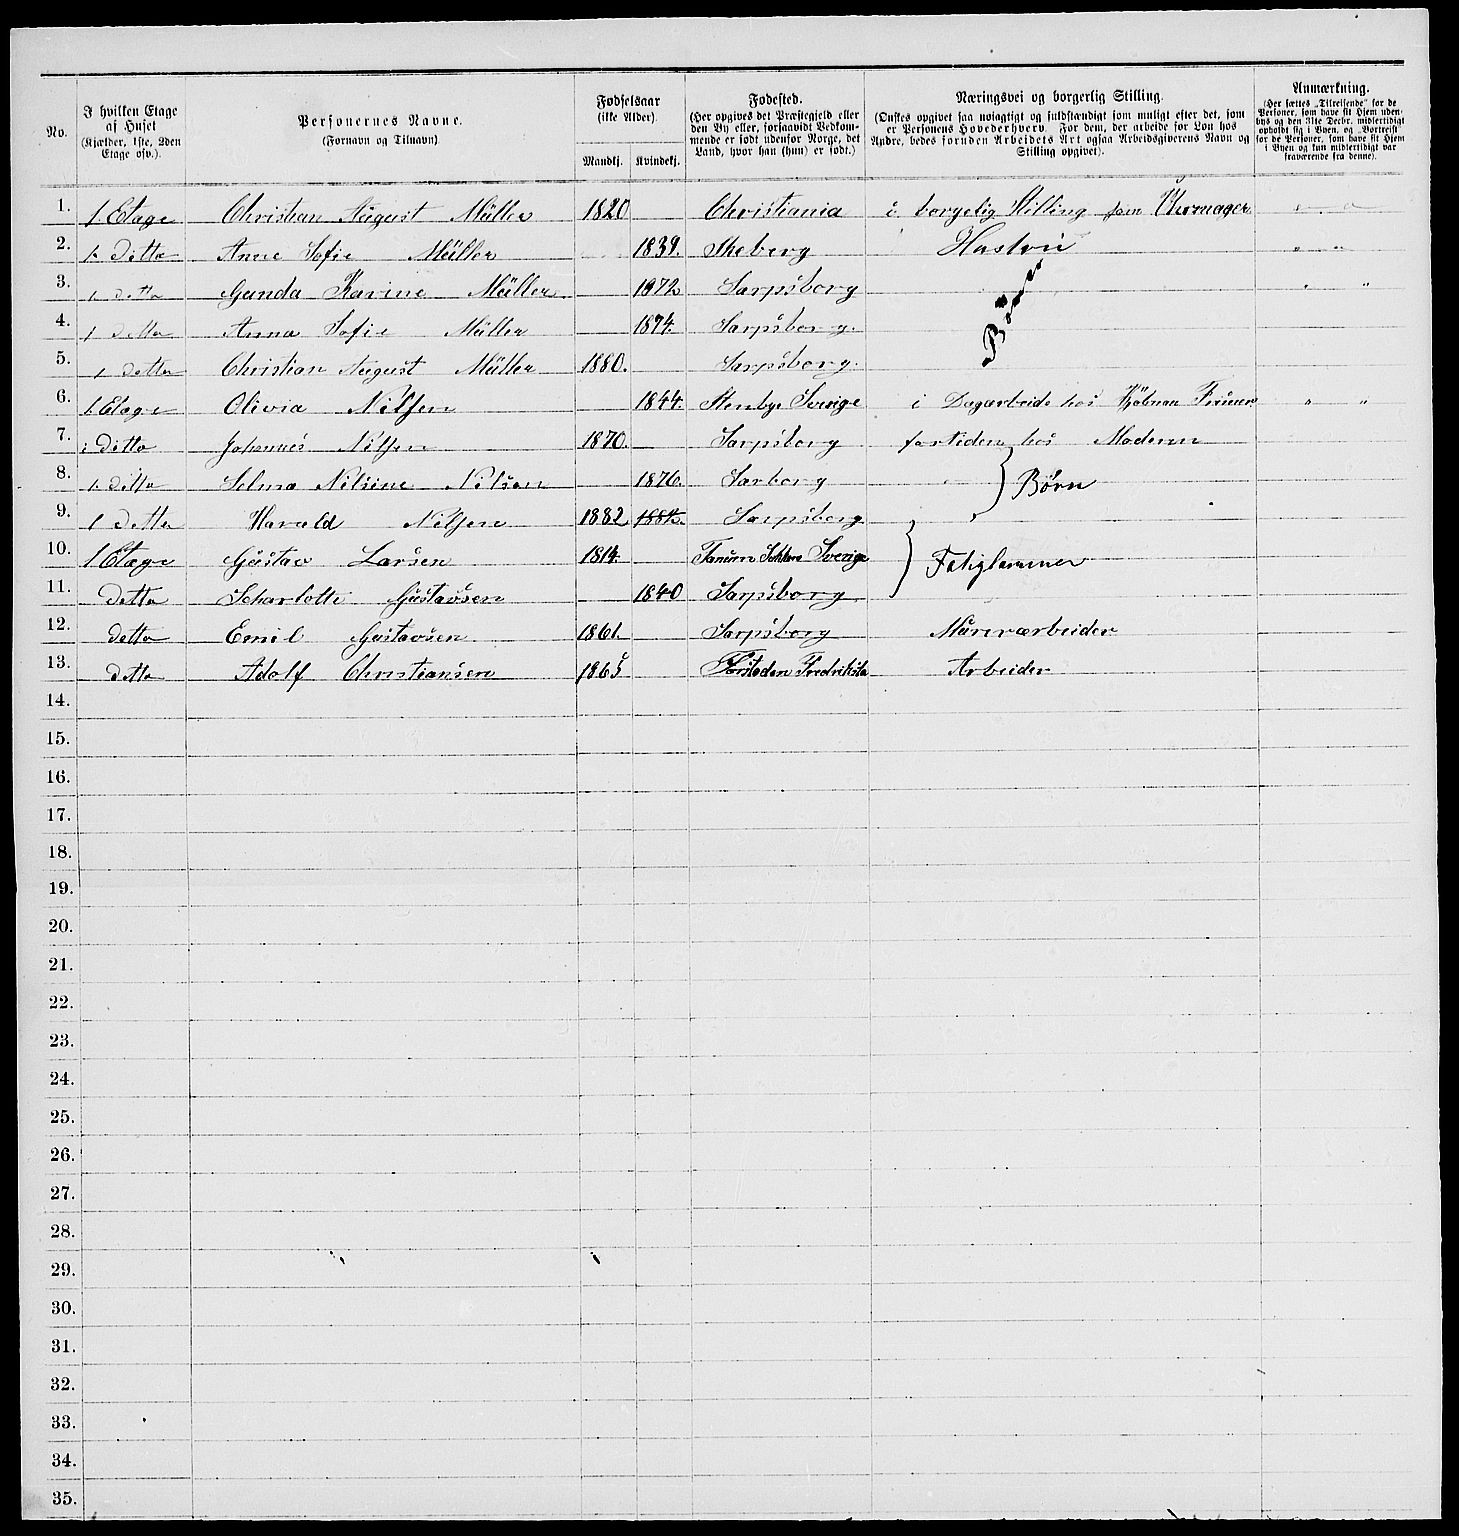 No.
I hvilken Etage af Huset (Kjælder, 1ste, 2den Etage osv.).
Personernes Navne. (Fornavn og Tilnavn)
Fødselsaar (ikke Alder). Mandkj. Kvindekj.
Fødested. (Her opgives det Præstegjeld eller den By eller, forsaavidt Vedkommende er født udenfor Norge, det Land, hvor han (hun) er født.)
Næringsvei og borgerlig Stilling. (Ønskes opgivet saa nøiagtigt og fuldstændigt som muligt efter det, som er Personens Hovederhverv. For dem, der arbeide for Løn hos Andre, bedes foruden Arbeidets Art ogsaa Arbeidsgiverens Navn og Stilling opgivet).
Anmærkning. (Her sættes „Tilreisende“ for de Personer, som have sit Hjem udenbys og den 31te Decbr. midlertidigt opholdt sig i Byen, og „Bortreist“ for de Personer, som have sit Hjem i Byen og kun midlertidigt var fraværende fra denne).
1. 1. Etage Christian August Müller 1820 Christiania i borgelig Stilling som Uhrmager
2. 1. ditto Anne Sofie Müller 1839. Skeberg Hustru " "
3. 1 ditto Gunda Karine Müller 1872 Sarpsborg Børn " "
4. 1 ditto Anna Sofie Müller 1874. Sarpsborg.
5. 1 ditto Christian August Müller 1880. Sarpsborg.
6. 1. Etage Olivia Nilsen 1844. Sverige i Dagarbeide hos " "
7. 1 Ditto Johannes Nilsen 1870. Sarpsborg fortiden hos Moderen
8. 1. ditto Selma Nilsine Nilsen 1876. Sarborg } Børn
9. 1 ditto Harald Nilsen 1882 1882. Sarpsborg
10. 1 Etage Gustav Larsen 1814. Tanum Sverige } Fatiglemmer
11. ditto Scharlotte Gustavsen 1840 Sarpsborg
12. ditto Emil Gustavsen 1861. Sarpsborg Murerarbeider
13. ditto Adolf Christiansen 1865 Forstaden Fredriksta Arbeider
14.
15.
16.
17.
18.
19.
20.
21.
22.
23.
24.
25.
26.
27.
28.
29.
30.
31.
32.
33.
34.
35.